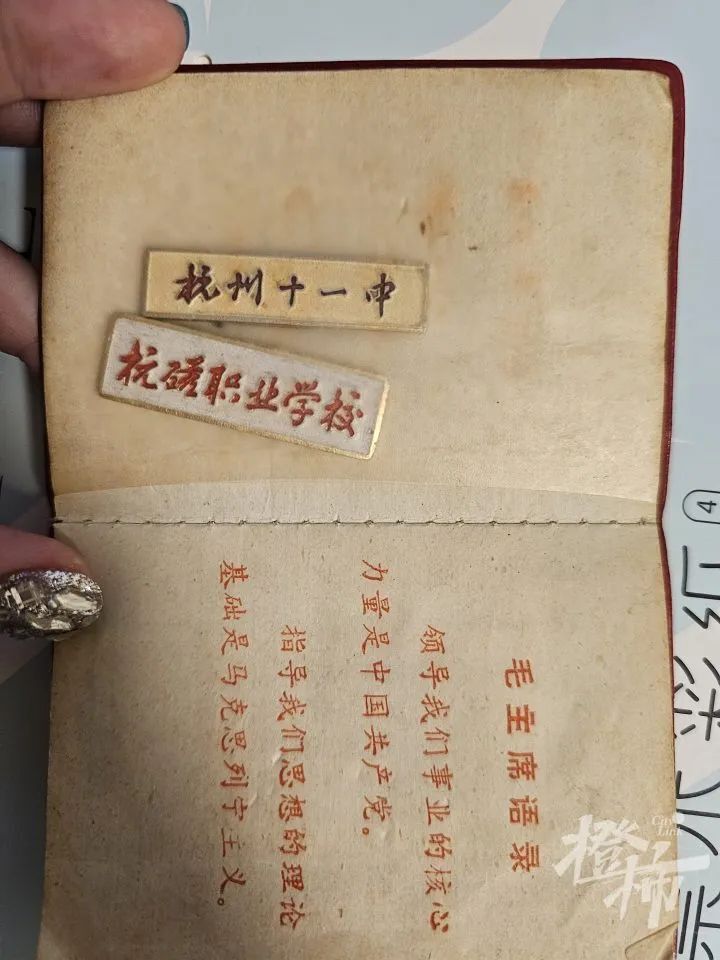 杭州十一中
杭职业学校
毛主席语录
领导我们事业的核心
力量是中国共产党。
指导我们思想的理论
基础是马克思列宁主义。
水彩纸
4
City Link
橙柿